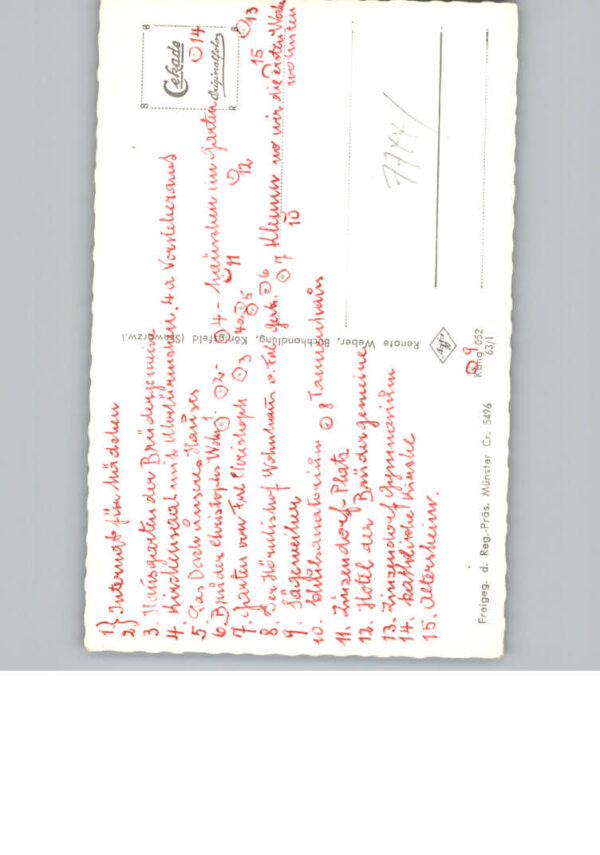 1) Internat für Mädchen
2)
3. Hausgarten der Brüdergemeine
4. Kirchensaal mit Uhrtürmchen. 4a Vorsteheramt
5. Das Dach unsres Hauses
6. Brüder Christophs Wohng. 2 - 4 - häuschen im Garten
7. Garten von Frl Christoph 3 4a 5
8. Der Hörnlishof Wohnhaus v. Frl 6
9. Sägeweiher 7 wo wir die ersten
wohnten
10. 8 Tannenhain
11. Zinzendorf-Platz
12. Hotel der Brüdergemeine
13. Zinzendorf Gymnasium
14. katholische Kirche
15. Altersheim.
9
10
11
12
13
14
15
Cekade
Originalfoto
B
B
B
R
7744/
Renate Weber, Buchhandlung, Königsfeld (Schwarzw.)
Köng 052
63/1
Freigeg. d. Reg.-Präs. Münster Cr. 5496